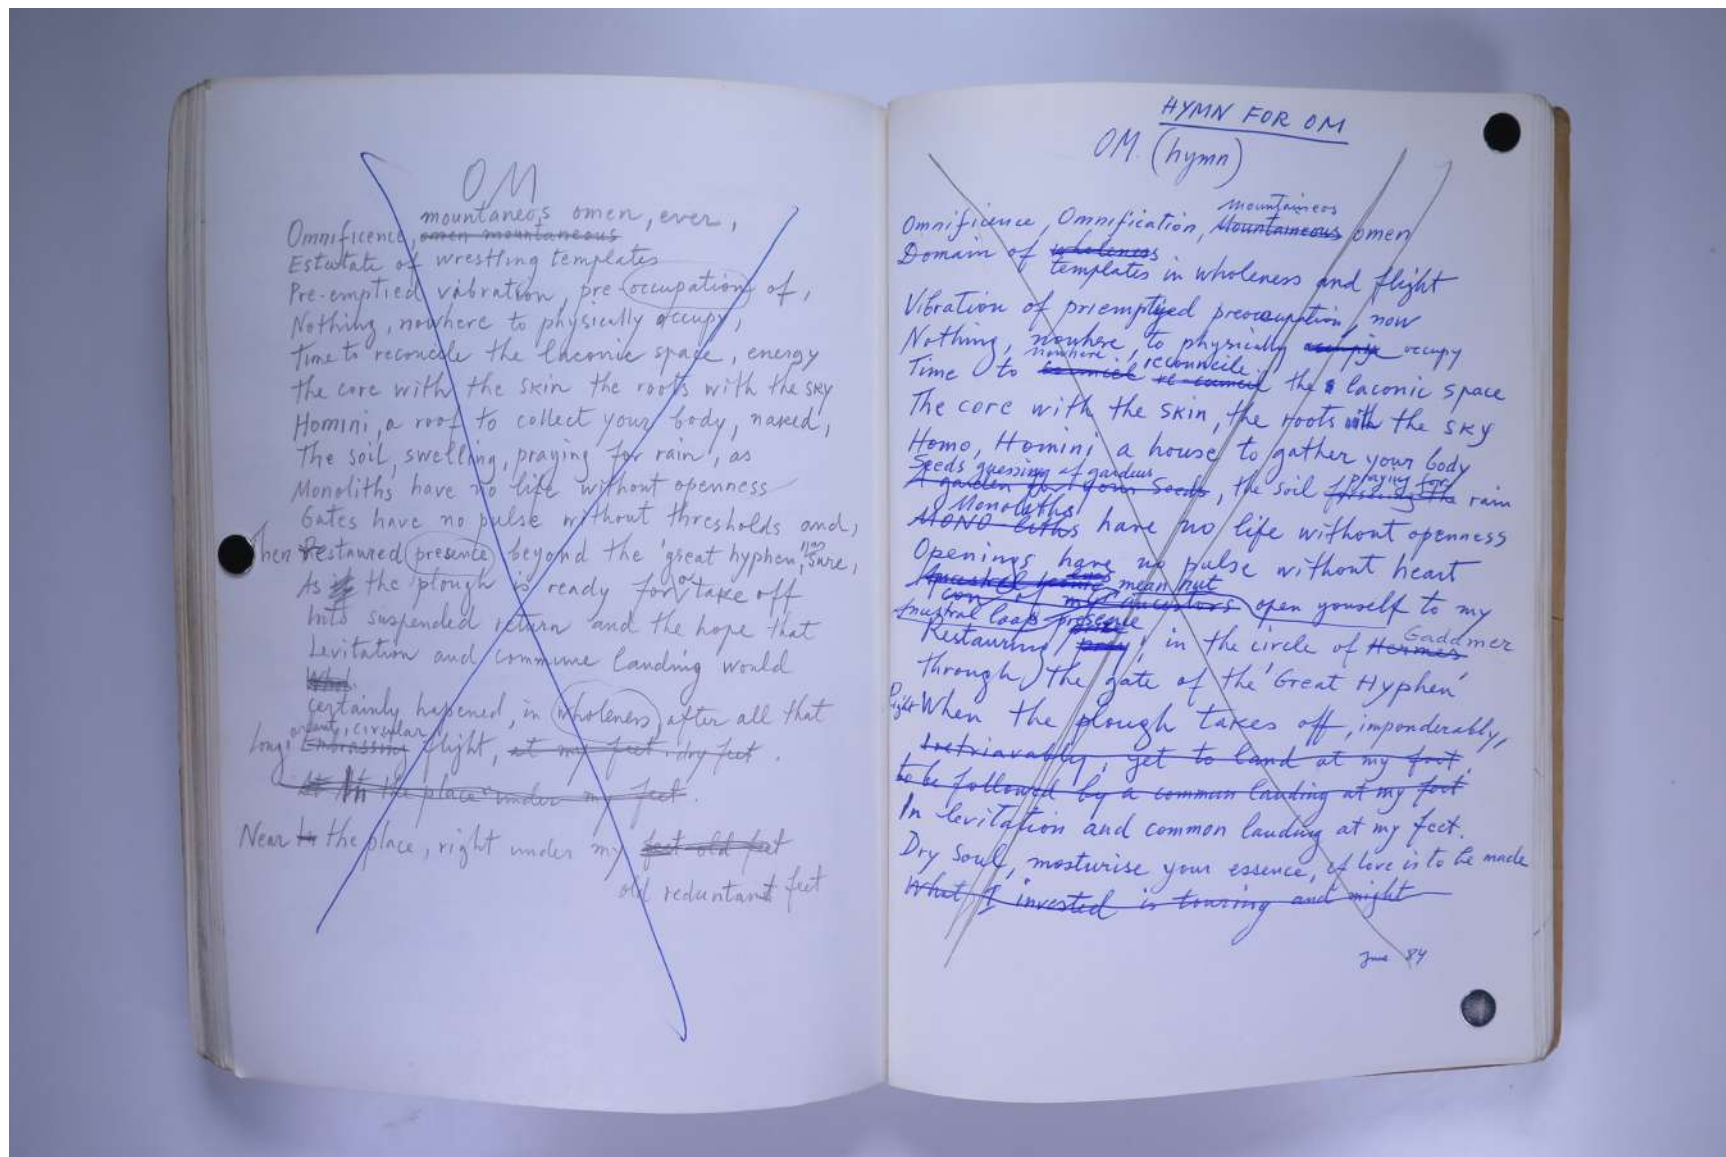 OM
mountaneos omen, ever,
Omnificence, omen mountaneous
Estutate of wrestling templates
Pre-emptied vibration, pre occupation of,
Nothing, nowhere to physically occupy,
Time to reconcile the laconic space, energy
The core with the skin the roots with the sky
Homini, a roof to collect your body, naked,
The soil, swelling, praying for rain, as
Monoliths have no life without openness
Gates have no pulse without thresholds and,
then Restaured presente beyond the 'great hyphen,' sure,
As the plough is ready for take off
Into suspended return and the hope that
Levitation and commune landing would
What
certainly happened, in wholeness after all that
circular
Long, Embrassing flight, at my feet. dry feet.
At In the place under my feet.
Near In the place, right under my feet old feet
old reduntant feet
HYMN FOR OM
OM. (hymn)
mountaineos
Omnificence, Omnification, Mountaineous omen
Domain of wholeness
templates in wholeness and flight
Vibration of priemptyed preoccupation, now
Nothing, nowhere, to physically occupy
nowhere reconcile
Time to the laconic space
The core with the skin, the roots with the sky
Homo, Homini, a house to gather your body
Seeds guessing of gardens praying for
A garden for your Seeds, the soil the rain
Monoliths
MONO liths have no life without openness
Openings have no pulse without heart
mean but
my ancestors open yourself to my
Ancestral loops presente Gadamer
Restauring pray, in the circle of Hermes
through the gate of the 'Great Hyphen'
Right When the plough takes off, imponderably,
Iretriavably, yet to land at my foot,
to be followed by a common landing at my foot
In levitation and common landing at my feet.
Dry Soul, mosturise your essence, if love is to be made
What I invested is touring and might
June 84